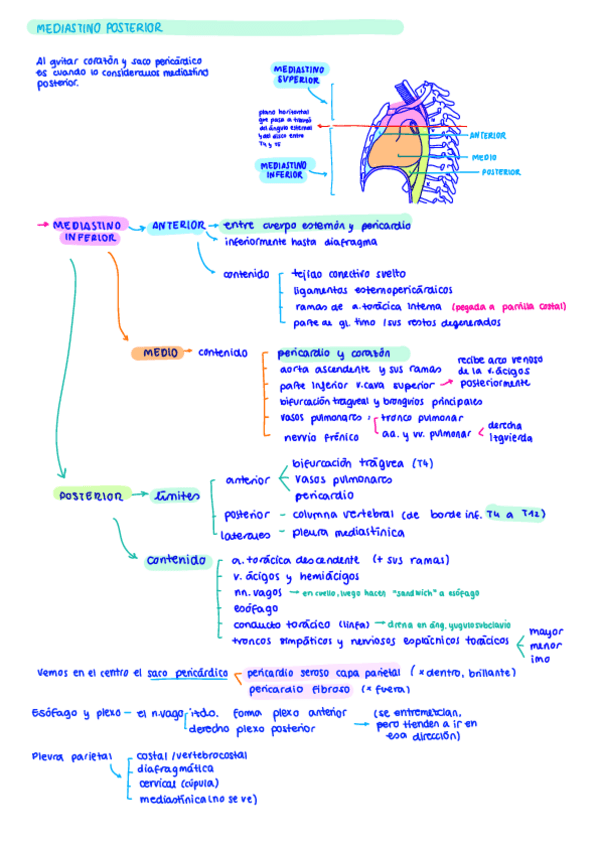 MEDIASTINO POSTERIOR
Al quitar corazón y saco pericárdico
es cuando lo consideramos mediastino
posterior.
MEDIASTINO
SUPERIOR
plano horizontal
que pasa a través
del ángulo esternal
y del disco entre
T4 y T5
MEDIASTINO
INFERIOR
ANTERIOR
MEDIO
POSTERIOR
→ MEDIASTINO INFERIOR → ANTERIOR → entre cuerpo esternón y pericardio
inferiormente hasta diafragma
contenido
tejido conectivo suelto
ligamentos esternopericárdicos
ramas de a. torácica interna (pegada a parrilla costal)
parte de gl. timo / sus restos degenerados
MEDIO → contenido
pericardio y corazón
aorta ascendente y sus ramas
parte inferior v. cava superior → recibe arco venoso
de la v. ácigos
posteriormente
bifurcación traqueal y bronquios principales
vasos pulmonares: tronco pulmonar
aa. y vv. pulmonar < derecha
izquierda
nervio frénico
POSTERIOR → límites
anterior
bifurcación tráquea (T4)
vasos pulmonares
pericardio
posterior - columna vertebral (de borde inf. T4 a T12)
laterales - pleura mediastínica
contenido
a. torácica descendente (+ sus ramas)
v. ácigos y hemiácigos
nn. vagos → en cuello, luego hacen "sandwich" a esófago
esófago
conducto torácico (linfa) → drena en áng. yugulosubclavio
troncos simpáticos y nerviosos esplácnicos torácicos
mayor
menor
imo
Vemos en el centro el saco pericárdico
pericardio seroso capa parietal (* dentro, brillante)
pericardio fibroso (* fuera)
Esófago y plexo - el n. vago
itdo. forma plexo anterior
derecho plexo posterior
→ (se entremezclan,
pero tienden a ir en
esa dirección)
Pleura parietal
costal / vertebrocostal
diafragmática
cervical (cúpula)
mediastínica (no se ve)